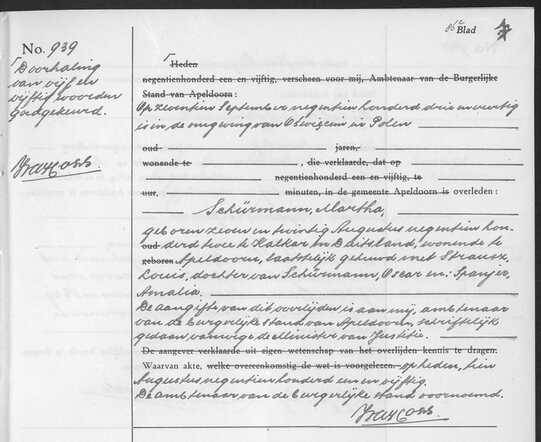 86e Blad
No. 939
Doorhaling
van vijf en
vijftig woorden
goedgekeurd.
Heden
negentienhonderd een en vijftig, verscheen voor mij, Ambtenaar van de Burgerlijke
Stand van Apeldoorn:
Op zeventien September negentien honderd drie en veertig
is in de omgeving van Oswiecim in Polen
oud jaren,
wonende te , die verklaarde, dat op
negentienhonderd een en vijftig, te
uur, minuten, in de gemeente Apeldoorn is overleden:
Schürmann, Martha,
geboren zeven en twintig Augustus negentien hon-
oud derd twee te Kalkar in Duitsland, wonende te
geboren Apeldoorn, laatstelijk gehuwd met Strausz,
Louis, dochter van Schürmann, Oscar en: Spanjer,
Amalia.
De aangifte van dit overlijden is aan mij, ambtenaar
van de burgerlijke stand van Apeldoorn, schriftelijk
gedaan vanwege de Minister van Justitie.
De aangever verklaarde uit eigen wetenschap van het overlijden kennis te dragen.
Waarvan akte, welke overeenkomstig de wet is voorgelezen. op heden, tien
Augustus negentien honderd een en vijftig.
De ambtenaar van de burgerlijke stand voornoemd.